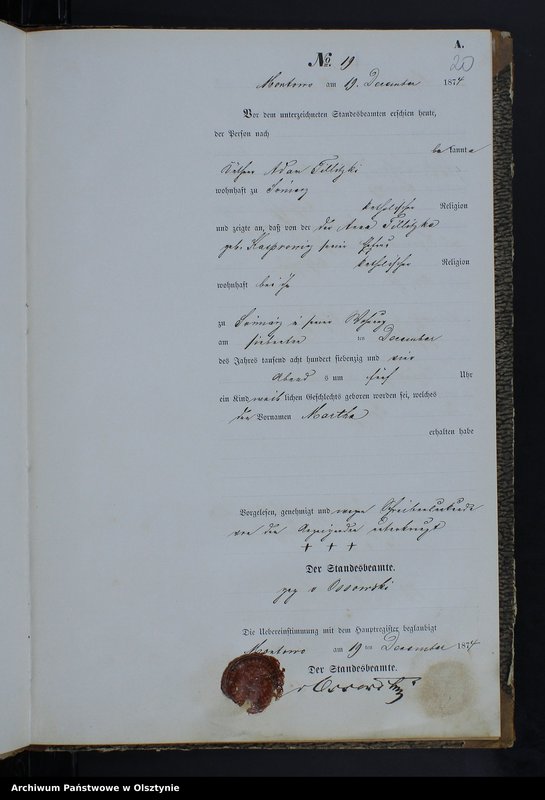 A.
No. 19
20
Montowo am 19. December 1874
Vor dem unterzeichneten Standesbeamten erschien heute,
der Person nach
be kannt
Adam Tillitzki
wohnhaft zu
katholischer Religion
und zeigte an, daß von der der Anna Tillitzka
geb. seiner Ehefrau
katholischer Religion
wohnhaft bei ihm
zu in seiner Wohnung
am siebenten ten December
des Jahres tausend acht hundert siebenzig und vier
Abends um fünf Uhr
ein Kind weiblichen Geschlechts geboren worden sei, welches
den Vornamen Martha
erhalten habe
Vorgelesen, genehmigt und wegen
von dem Anzeigenden unterkreuzt
+ + +
Der Standesbeamte.
gez v Ossowski
Die Uebereinstimmung mit dem Hauptregister beglaubigt
Montowo am 19 ten December 1874
Der Standesbeamte.
v Ossowski
Archiwum Państwowe w Olsztynie